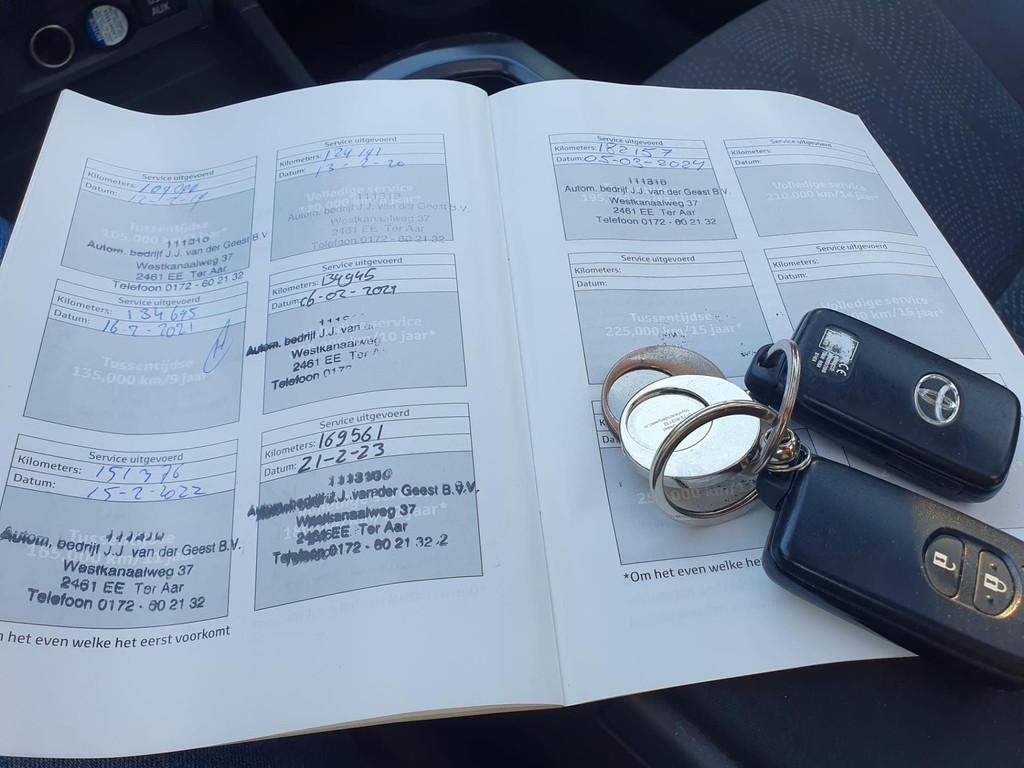 AUX
Service uitgevoerd
Kilometers:
Datum:
Tussentijdse
105,000 km/7 jaar*
111310
Autom. bedrijf J.J. van der Geest B.V.
Westkanaalweg 37
2461 EE Ter Aar
Telefoon 0172 - 60 21 32
Service uitgevoerd
Kilometers: 124 141
Datum: 13-2-20
Volledige service
Autom. bedrijf J.J. van der Geest B.V.
Westkanaalweg 37
2461 EE Ter Aar
Telefoon 0172 - 60 21 32
Service uitgevoerd
Kilometers: 134695
Datum: 16-2-2021
Tussentijdse
135,000 km/9 jaar*
Service uitgevoerd
Kilometers: 134945
Datum: 06-02-2021
Autom. bedrijf J.J. van
Westkanaalweg
2461 EE Ter A
Telefoon 0172
Service uitgevoerd
Kilometers: 151376
Datum: 15-2-2022
111310
Autom. bedrijf J.J. van der Geest B.V.
Westkanaalweg 37
2461 EE Ter Aar
Telefoon 0172 - 60 21 32
Service uitgevoerd
Kilometers: 169561
Datum: 21-2-23
Autom. bedrijf J.J. van der Geest B.V.
Westkanaalweg 37
2461 EE Ter Aar
Telefoon 0172 - 60 21 32
n het even welke het eerst voorkomt
Service uitgevoerd
Kilometers: 182157
Datum: 05-03-2024
111310
Autom. bedrijf J.J. van der Geest B.V.
Westkanaalweg 37
2461 EE Ter Aar
Telefoon 0172 - 60 21 32
Service uitgevoerd
Kilometers:
Datum:
Volledige service
210,000 km/14 jaar*
Service uitgevoerd
Kilometers:
Datum:
Tussentijdse
225,000 km/15 jaar*
Service uitgevoerd
Kilometers:
Datum:
Volledige service
km/16 jaar*
*Om het even welke he